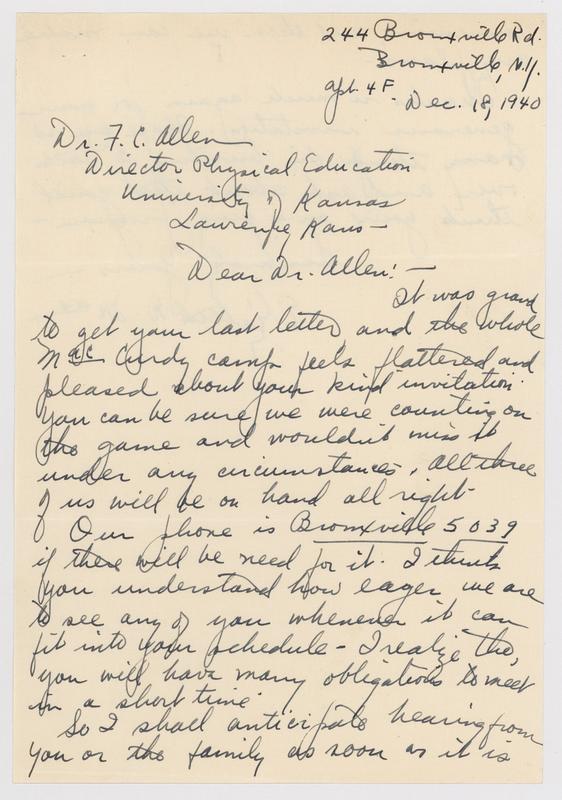 244 Bronxville Rd.
Bronxville, N.Y.
Apt. 4F
Dec. 18, 1940
Dr. F. C. Allen
Director Physical Education
University of Kansas
Lawrence, Kans -
Dear Dr. Allen: -
It was grand
to get your last letter, and the whole
MacCurdy camp feels flattered and
pleased about your kind invitation.
You can be sure we were counting on
the game and wouldn't miss it
under any circumstances. All three
of us will be on hand all right.
Our phone is Bronxville 5039
if there will be need for it. I think
you understand how eager we are
to see any of you whenever it can
fit into your schedule - I realize tho,
you will have many obligations to meet
in a short time.
So I shall anticipate hearing from
you or the family as soon as it is